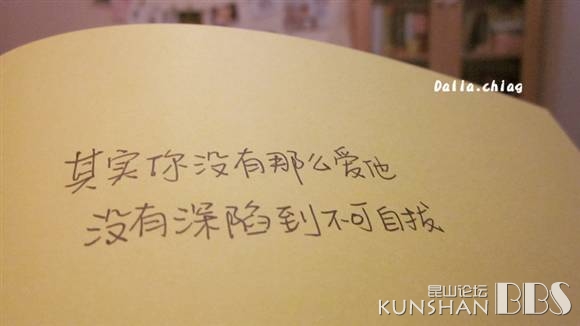 Dalla.chiag
其实你没有那么爱他
没有深陷到不可自拔
昆山论坛
KUNSHAN BBS